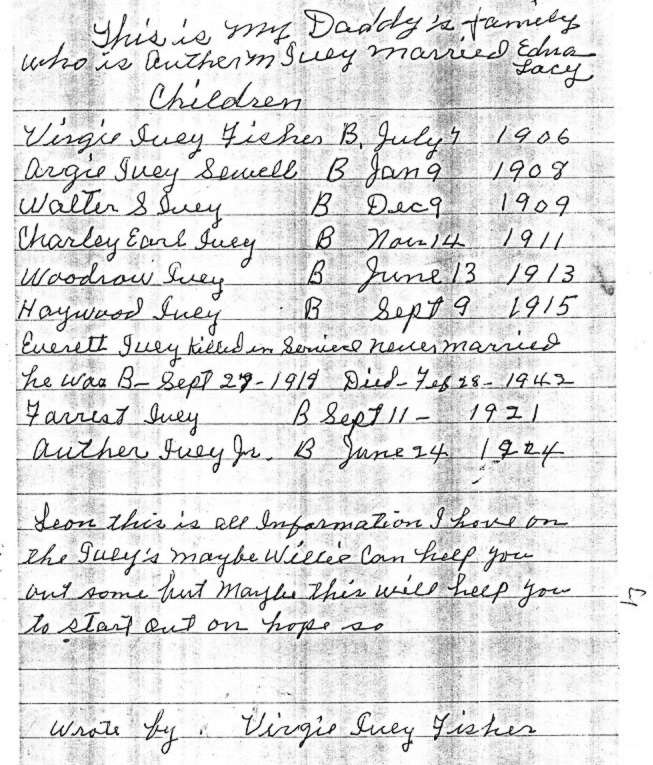 This is my Daddy's family
who is Auther m Ivey married Edna
Lacy
Children
Virgie Ivey Fisher B. July 7 1906
Argie Ivey Sewell B Jan 9 1908
Walter S Ivey B Dec 9 1909
Charley Earl Ivey B Nov 14 1911
Woodrow Ivey B June 13 1913
Haywood Ivey B Sept 9 1915
Everett Ivey killed in Service never married
he was B- Sept 27-1919 Died- Feb 28- 1942
Farrest Ivey B Sept 11- 1921
Auther Ivey Jr. B June 24 1924
Leon this is all Information I have on
the Ivey's maybe Willie Can help you
out some but Maybe this will help you
to start out on hope so
Wrote by. Virgie Ivey Fisher